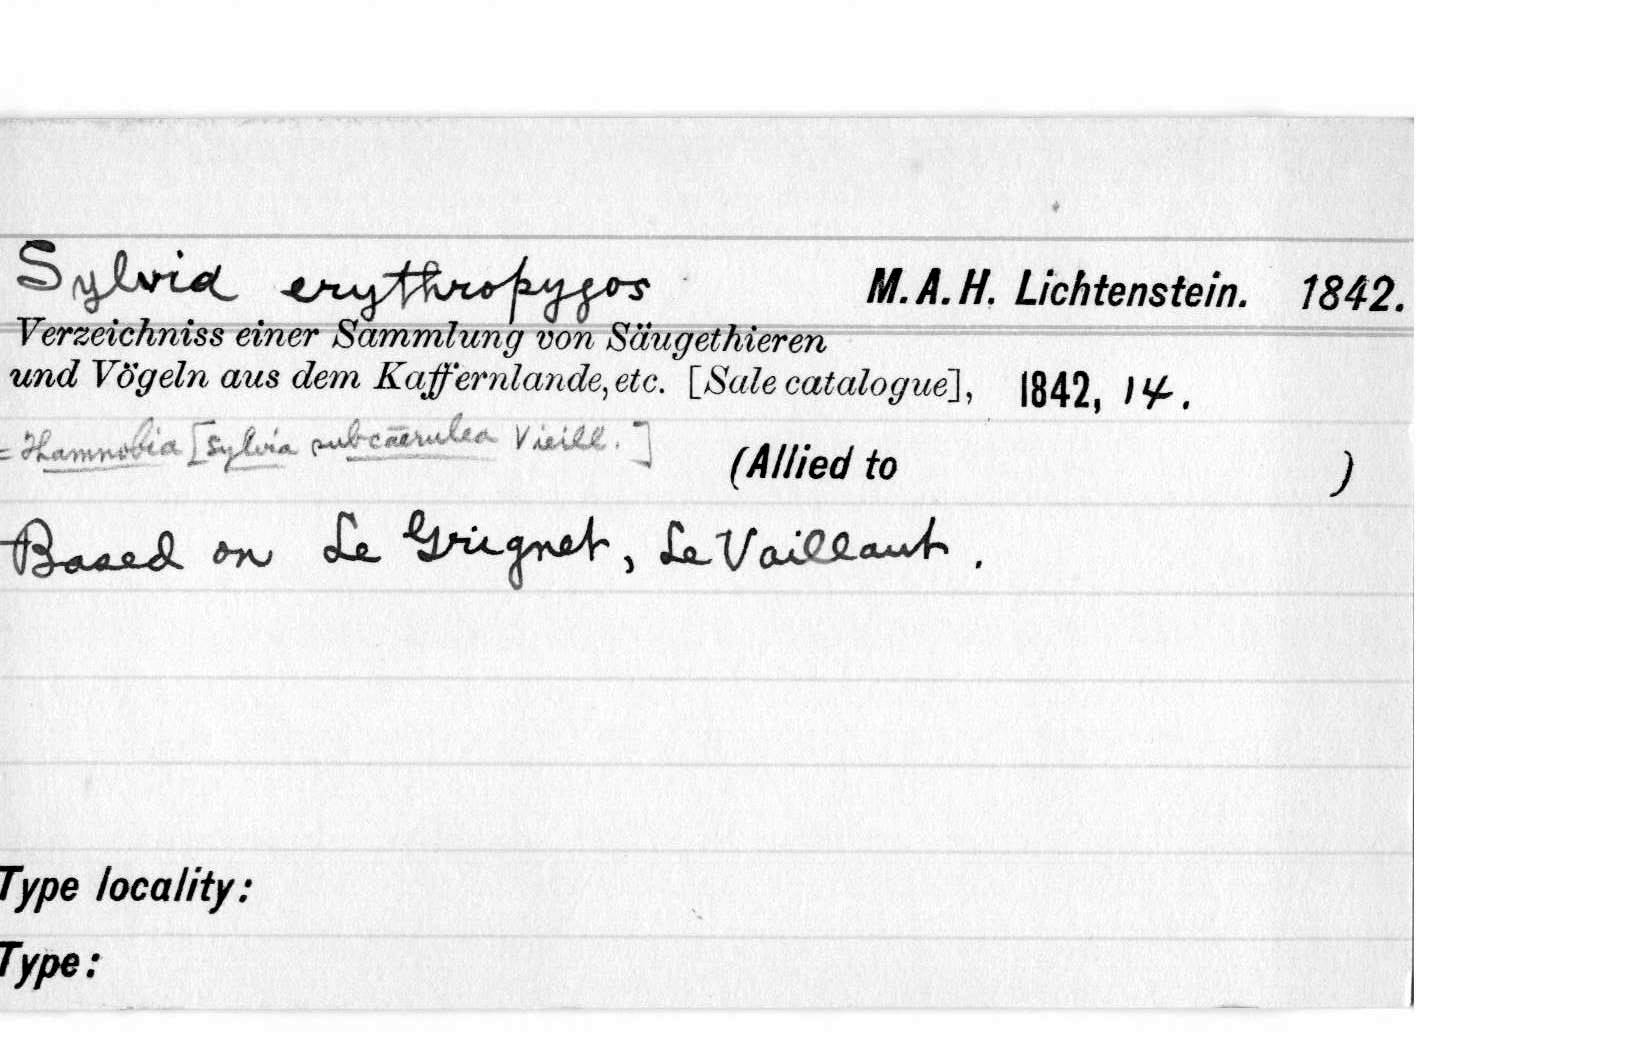 Sylvia erythropygos M. A. H. Lichtenstein. 1842.
Verzeichniss einer Sammlung von Säugethieren
und Vögeln aus dem Kaffernlande, etc. [Sale catalogue], 1842, 14.
= Thamnobia [Sylvia subcaerulea Vieill.]
(Allied to )
Based on Le Grignet, Le Vaillant.
Type locality:
Type: